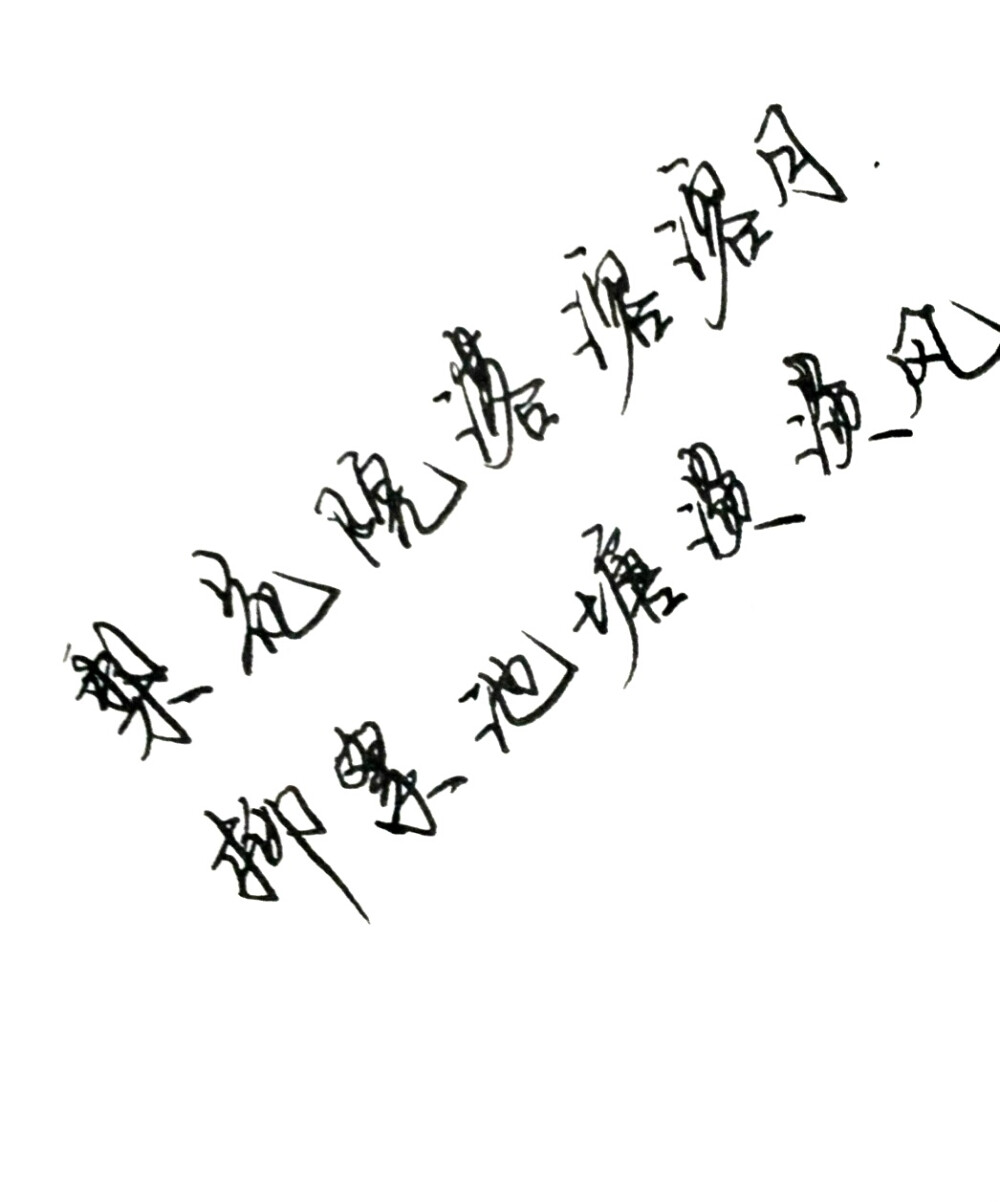 梨花院落溶溶月
柳絮池塘淡淡风